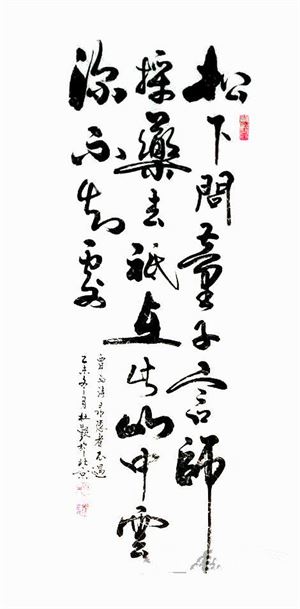 松下問童子言師
採藥去祇在此山中雲
深不知處
賈島詩尋隱者不遇
乙未冬月杜於北京